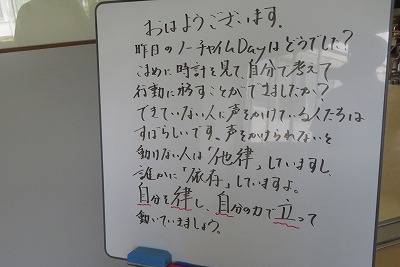 おはようございます。
昨日のノーチャイムDayはどうでした?
こまめに時計を見て、自分で考えて
行動に移すことができましたか?
できていない人に声をかけている人たちは
すばらしいです。声をかけられないと
動けない人は「他律」していますし、
誰かに「依存」していますよ。
自分を律し、自分の力で立って
動いていきましょう。